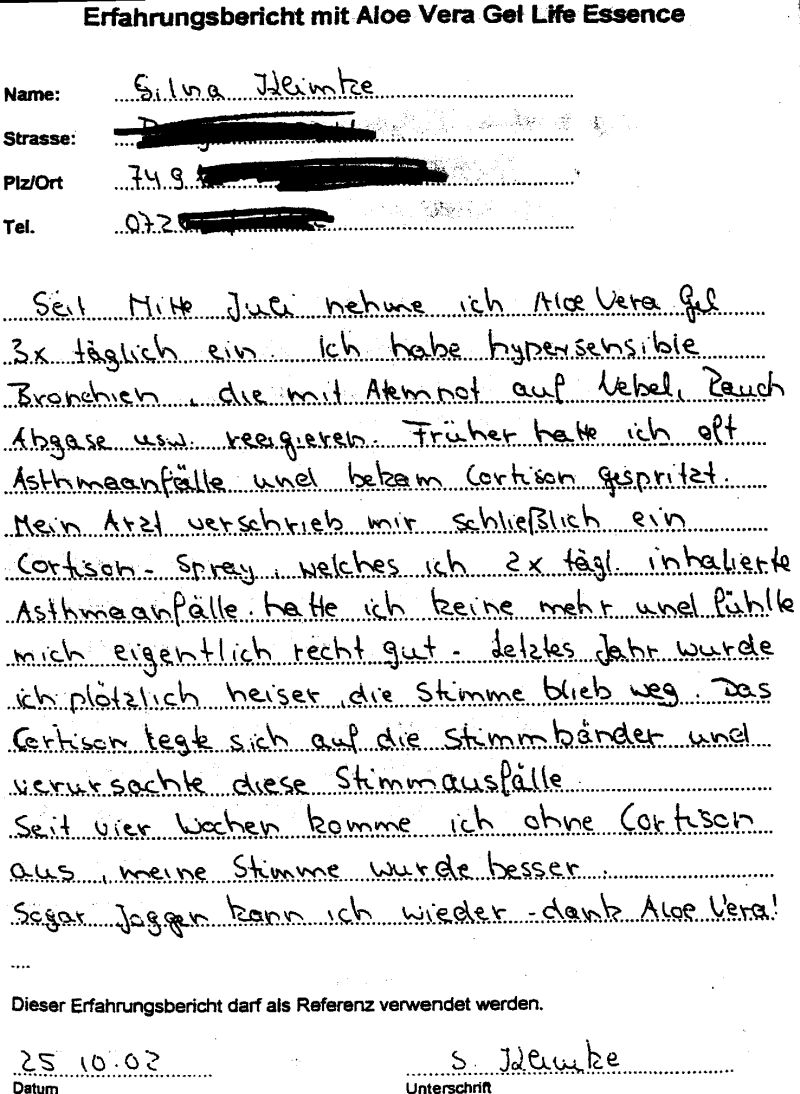 Erfahrungsbericht mit Aloe Vera Gel Life Essence
Name: Silvia Kleimke
Strasse:
Plz/Ort 749
Tel. 072
Seit Mitte Juli nehme ich Aloe Vera Gel
3x täglich ein. Ich habe hypersensible
Bronchien, die mit Atemnot auf Nebel, Rauch
Abgase usw. reagieren. Früher hatte ich oft
Asthmaanfälle und bekam Cortison gespritzt.
Mein Arzt verschrieb mir schließlich ein
Cortison-Spray, welches ich 2x tägl. inhalierte
Asthmaanfälle hatte ich keine mehr und fühlte
mich eigentlich recht gut - letztes Jahr wurde
ich plötzlich heiser, die Stimme blieb weg. Das
Cortison legte sich auf die Stimmbänder und
verursachte diese Stimmausfälle.
Seit vier Wochen komme ich ohne Cortison
aus, meine Stimme wurde besser.
Sogar Joggen kann ich wieder - dank Aloe Vera!
....
Dieser Erfahrungsbericht darf als Referenz verwendet werden.
25 10.02 S. Kleimke
Datum Unterschrift